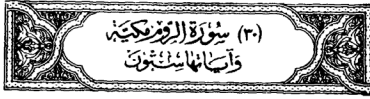 (٣٠) سُوْرَةُ الرُّوْمِ مَكِّيَّةٌ
وَآيَاتُهَا سِتُّوْنَ